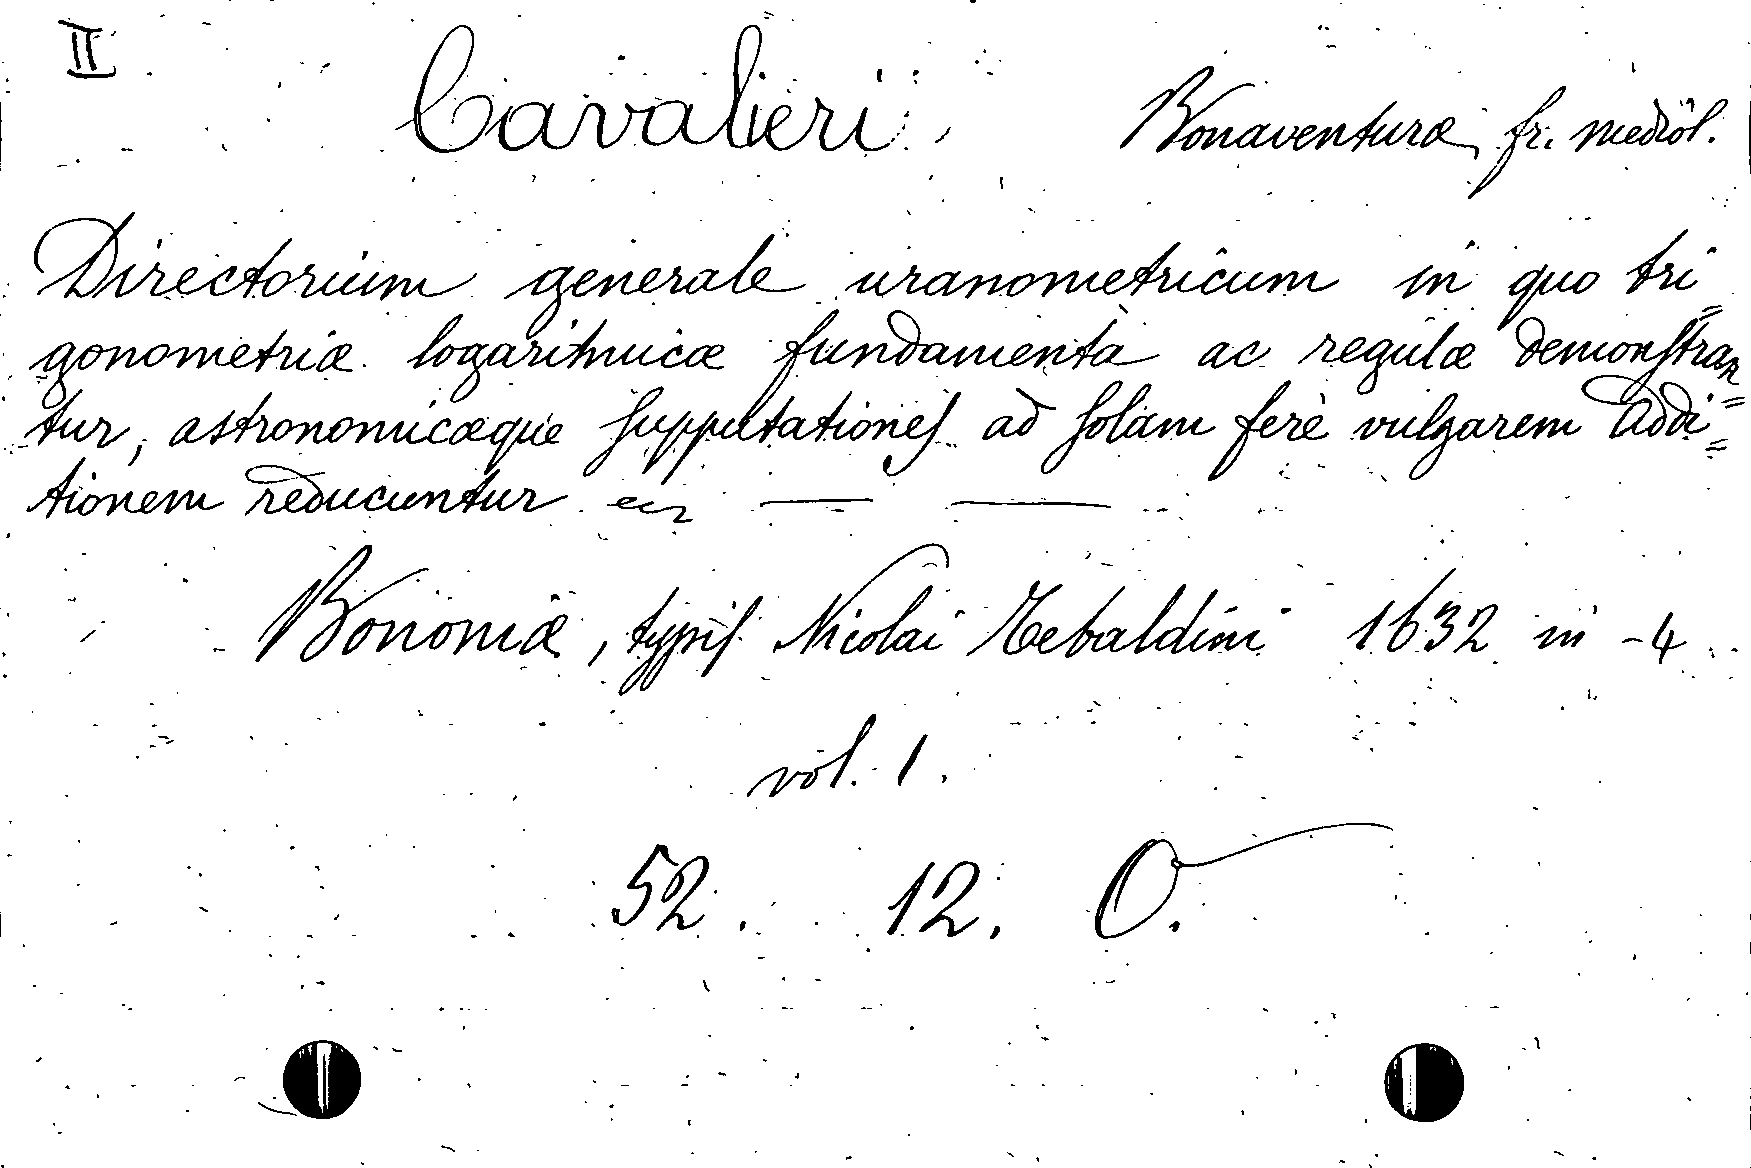 II
Cavalieri, Bonaventuræ, fr. mediol.
Directorium generale uranometricum in quo tri=
gonometriæ logarithmicæ fundamenta ac regulæ demonstran=
tur, astronomicæque supputationes ad solam ferè vulgarem addi=
tionem reducuntur — —
Bononiæ, typis Nicolai Tebaldini 1632 in -4
vol. 1.
52. 12. O.